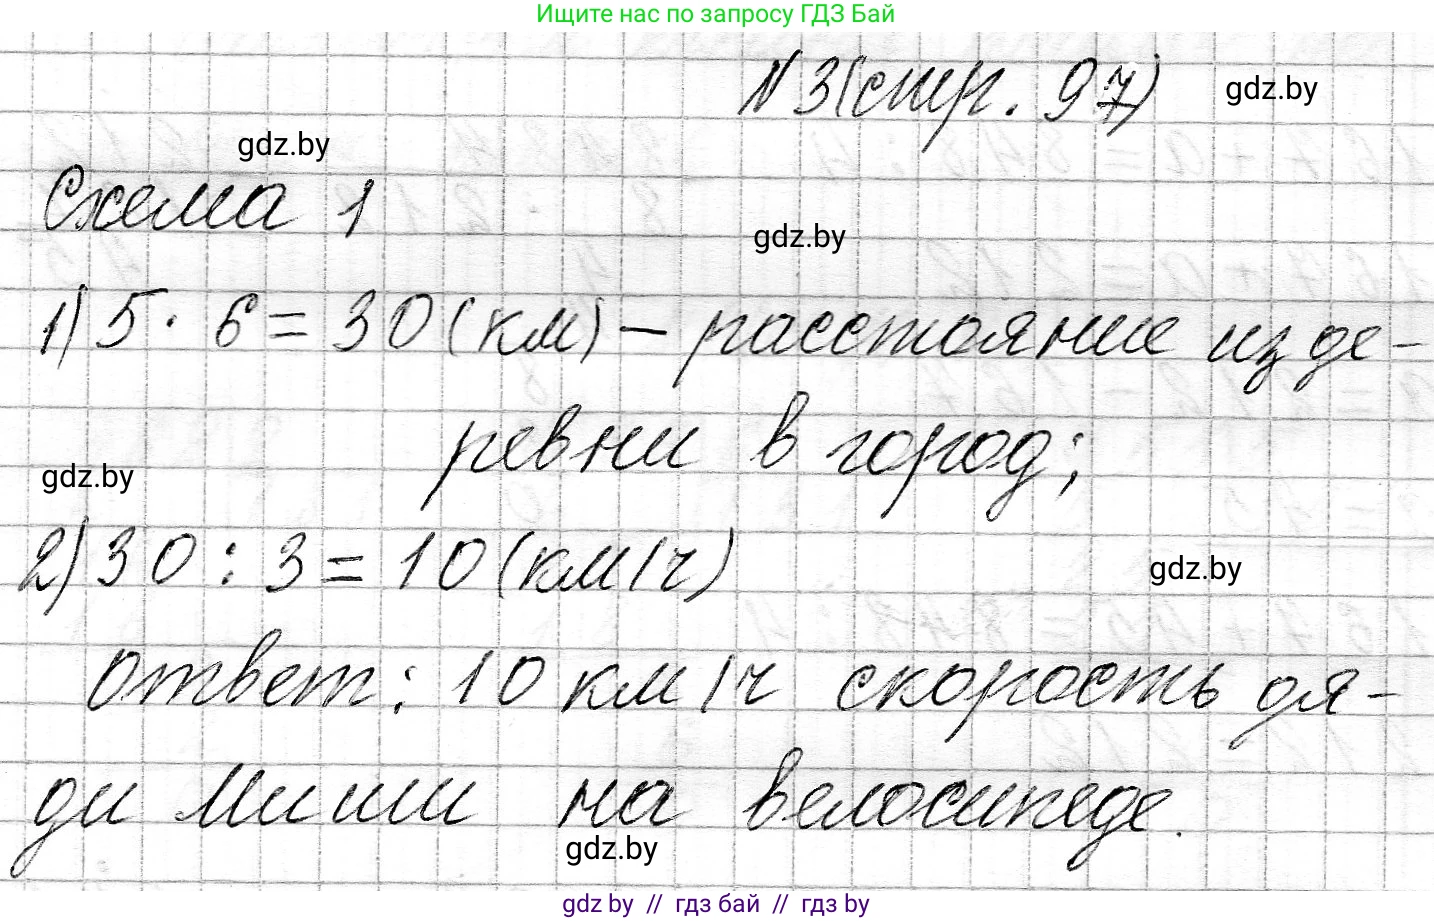 Ищите нас по запросу ГДЗ Бай
N 3 (стр. 97)
gdz.by
gdz.by
Схема 1
gdz.by
1) 5 · 6 = 30 (км) – расстояние из де-
ревни в город;
gdz.by
2) 30 : 3 = 10 (км/ч)
gdz.by
ответ: 10 км/ч скорость дя-
ди Миши на велосипеде.
gdz.by
gdz by // гдз бай // гдз by